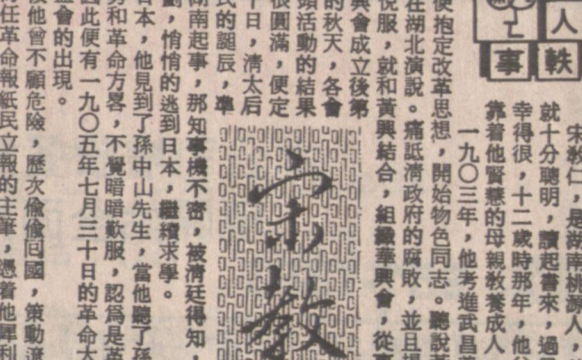 人軼
事
宋教仁，是湖南桃源人，
就十分聰明，讀起書來，過
幸得很，十二歲時那年，他
靠着他賢慧的母親教養成人
一九〇三年，他考進武昌
便抱定改革思想，開始物色同志。聽說
在湖北演說。痛詆清政府的腐敗，並且提
悅服，就和黃興結合，組織華興會，從
興會成立後第
的秋天，各會
頭活動的結果
很圓滿，便定
十日，清太后
的誕辰，準
宋教
湖南起事，那知事機不密，被清廷得知，
劃，悄悄的逃到日本，繼續求學。
日本，他見到了孫中山先生，當他聽了孫
勢和革命方畧，不覺暗暗歎服，認爲是革
因此便有一九〇五年七月三十日的革命大
盟會的出現。
後他曾不顧危險，歷次偷偷囘國，策動
任革命報紙民立報的主筆，憑着他犀利